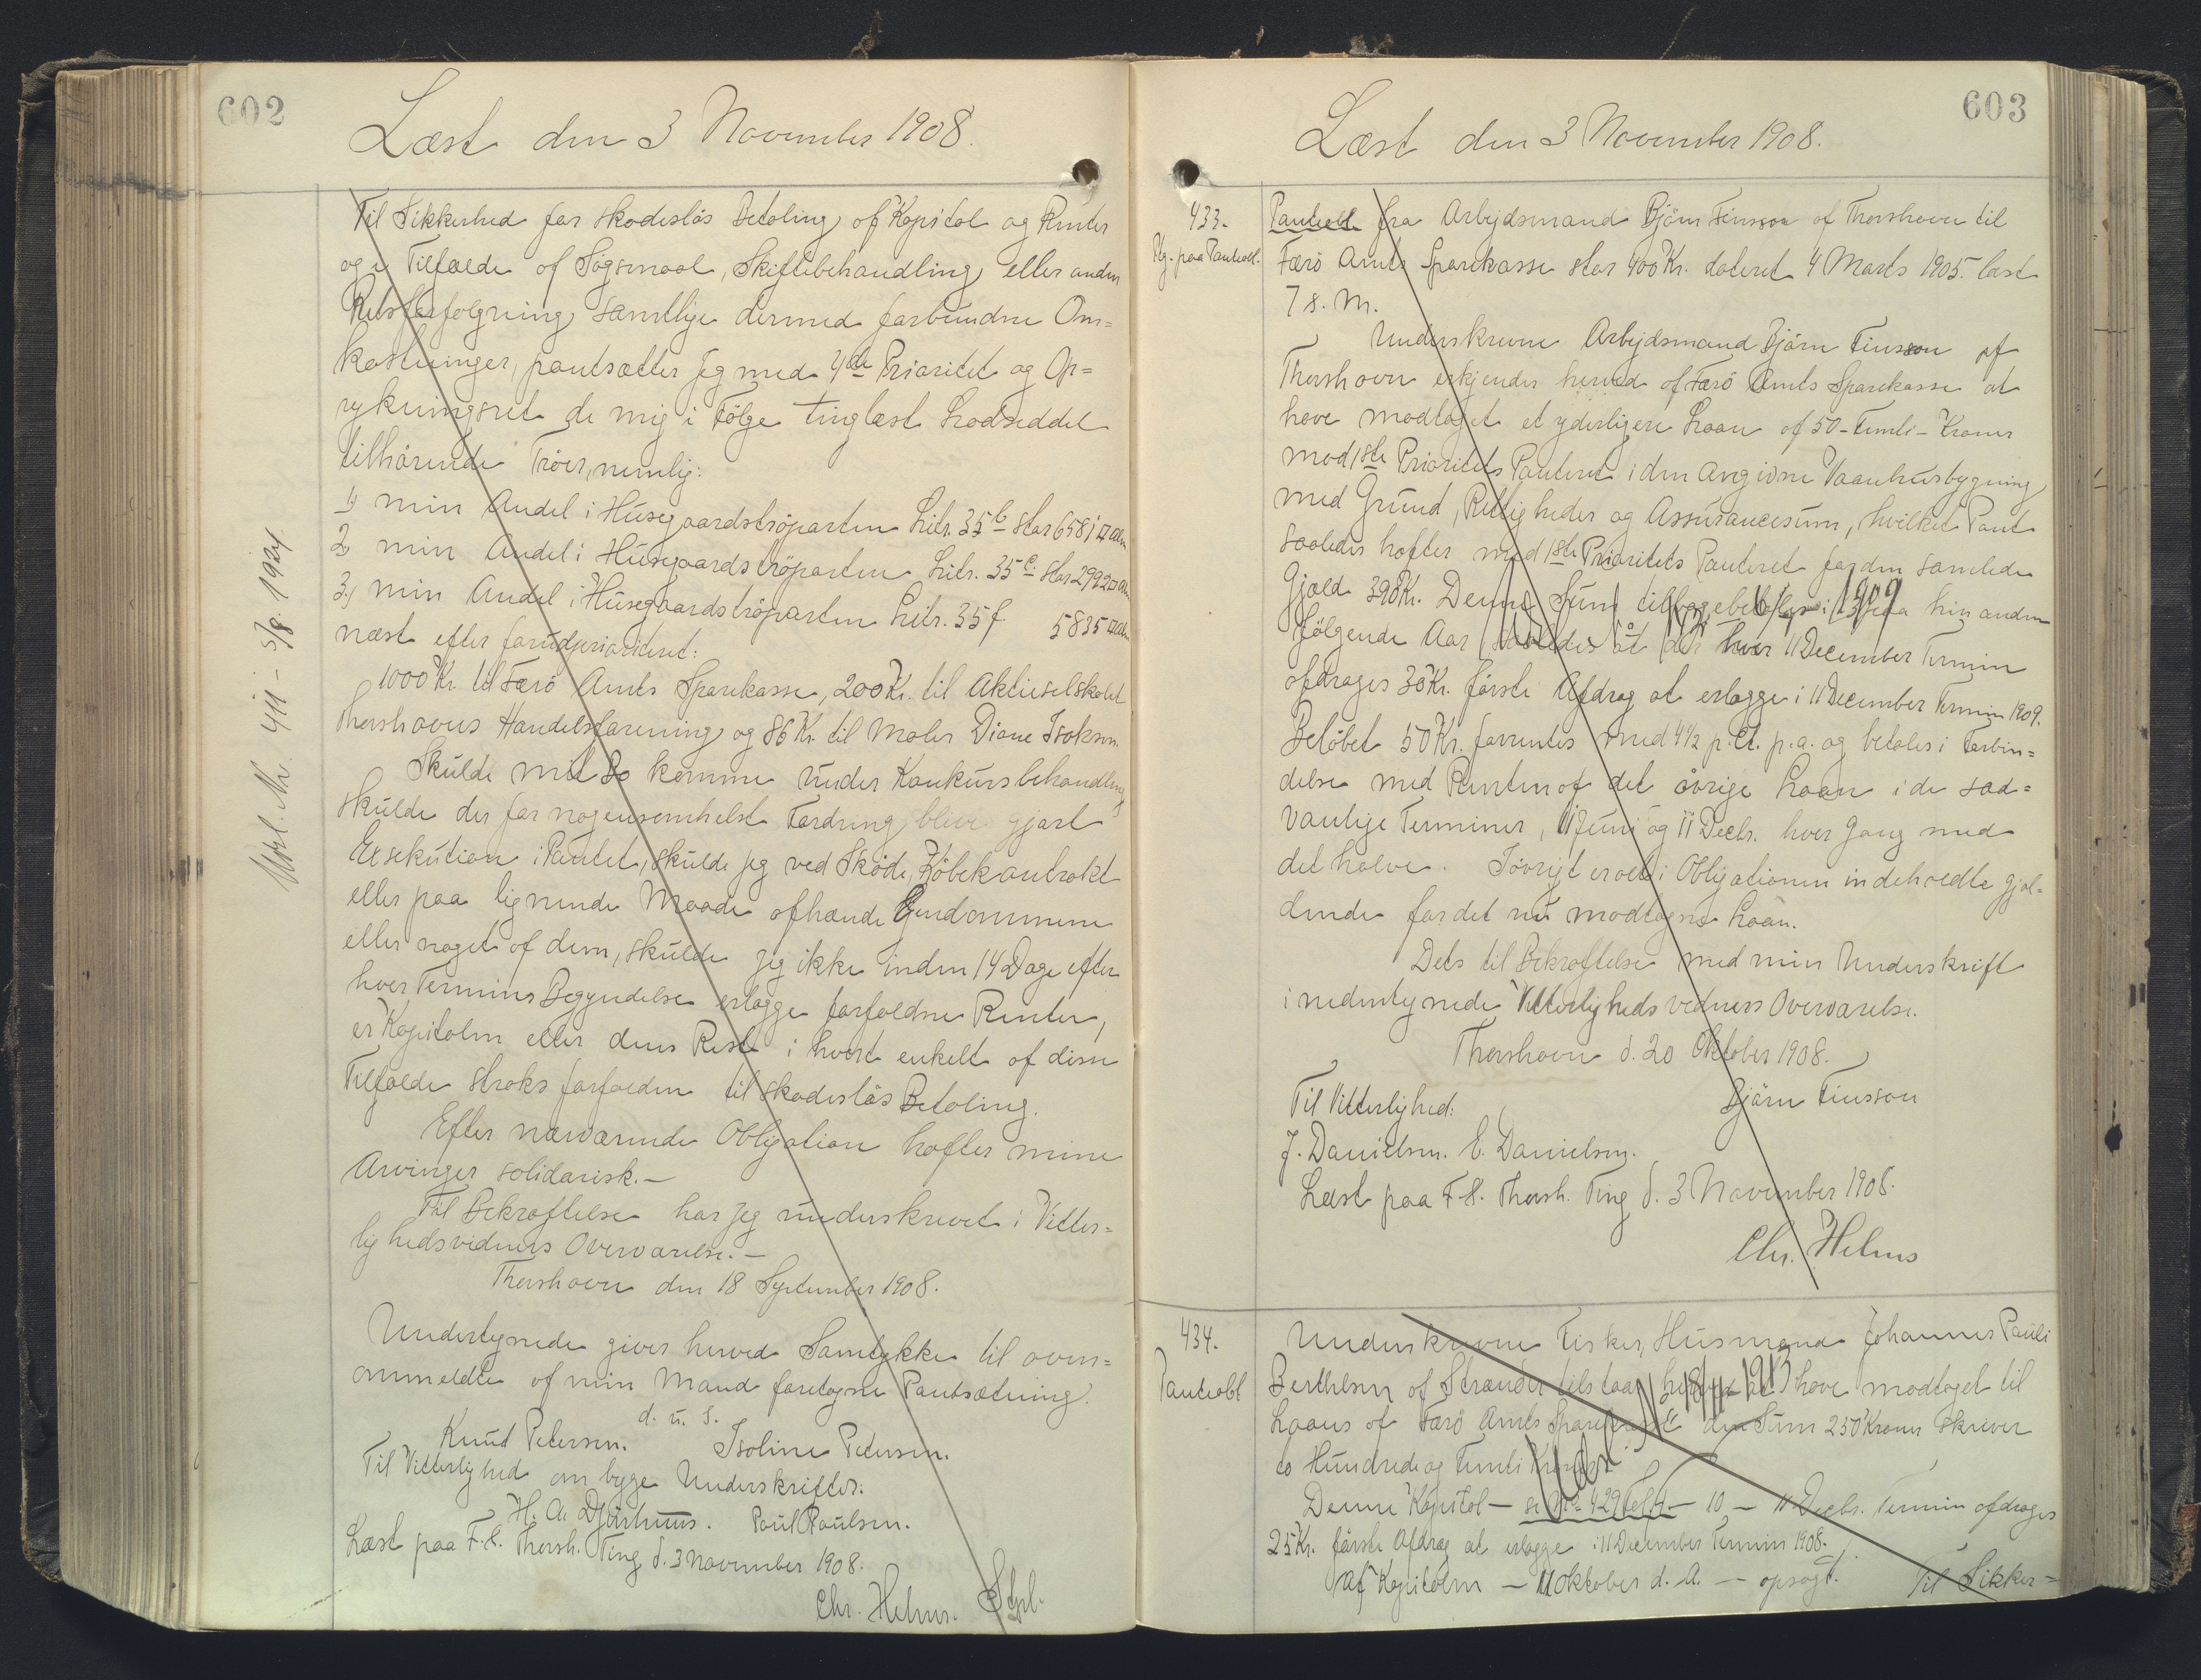 602
Læst den 3 November 1908.
Til Sikkerhed for skadeslös Betaling af Kapital og Renter
og i Tilfælde af Sögsmaal, Skiftebehandling eller anden
Retsforfølgning samtlige dermed forbundne Om=
kostninger, pantsætter jeg med 4de Prioritet og Op=
rykningsret de mig i Fölge tinglæst Lodseddel
tilhörende Tröer, nemlig:
1) min Andel i Húsegaardströparten Litr. 35 b stor 6581 □ Alen
2) min Andel i Húsegaardströparten Litr. 35 c. stor 2992 □ Al.
3) min Andel i Húsegaardströparten Litr. 35 f 5835 □ Alen
næst efter forudprioriteret:
1000 Kr. til Færö Amts Sparekasse, 200 Kr. til Aktieselskabet
Thorshavns Handelsforening og 86 Kr. til Maler Diane Isaksen.
Skulde mit Bo komme under Konkursbehandling
skulde der for nogensomhelst Fordring blive gjort
Exsekution i Pantet, skulde jeg ved Sköde, Köbekontrakt
eller paa lignende Maade afhænde Ejendommene
eller noget af dem, skulde jeg ikke inden 14 Dage efter
hver Termins Begyndelse erlægge forfaldne Renter,
er Kapitalen eller dens Rest i hvert enkelt af disse
Tilfælde straks forfalden til skadeslös Betaling.
Efter nærværende Obligation hæfter mine
Arvinger solidarisk.—
Til Bekræftelse har jeg underskrevet i Vitter=
lighedsvidners Overværelse.—
Thorshavn den 18 September 1908.
Undertegnede giver herved Samtykke til oven=
ommeldte af min Mand foretagne Pantsætning.
d. u. s.
Knud Petersen. Isoline Petersen.
Til Vitterlighed om begge Underskrifter:
H. A. Djurhuus. Poul Poulsen.
Læst paa F.S. Thorsh. Ting d. 3 November 1908.
Chr. Helms. Stpl.
603
Læst den 3 November 1908.
433.
Panteobl. fra Arbejdsmand Björn Finsson af Thorshavn til
Færö Amts Sparekasse stor 400 Kr. dateret 4 Marts 1905. læst
7 s. M.
Underskrevne Arbejdsmand Björn Finsson af
Thorshavn erkjender herved af Færö Amts Sparekasse at
have modtaget et yderligere Laan af 50 - Femti - Kroner
mod 1ste Prioritets Panteret i den angivne Vaanhusbygning
med Grund, Rettigheder og Assurancesum, hvilket Pant
saaledes hæfter med 1ste Prioritets Panteret for den samlede
Gjæld 390 Kr. Denne Sum tilbagebetales i 13 paa hinanden
fölgende Aar saaledes at der hver 11 December Termin
afdrages 30 Kr. förste Afdrag at erlægge i 11 December Termin 1909.
Belöbet 50 Kr. forrentes med 4½ p.Ct. p.a. og betales i Forbin=
delse med Renten af det övrige Laan i de sæd=
vanlige Terminer, 11 Juni og 11 Decbr. hver Gang med
det halve. Iövrigt er det i Obligationen indeholdte gjæl=
dende for det nu modtagne Laan.
Dets til Bekræftelse med min Underskrift
i nedentegnede Vitterlighedsvidners Overværelse.
Thorshavn d. 20 Oktober 1908.
Til Vitterlighed: Björn Finsson
J. Danielsen. E. Danielsen.
Læst paa F.S. Thorsh. Ting d. 3 November 1908.
Chr. Helms
434.
Panteobl
Underskrevne Fisker, Husmand Johannes Pauli
Berthelsen af Strænder tilstaar herved at have modtaget til
Laans af Færö Amts Sparekasse den Sum 250 Kroner skriver
to Hundrede og Femti Kroner.
Denne Kapital — se No 429 — 10 — 11 Decbr. Termin afdrages
25 Kr. förste Afdrag at erlægge i 11 December Termin 1908.
af Kapitalen — 11 Oktober d. A. — opsagt. Til Sikker=